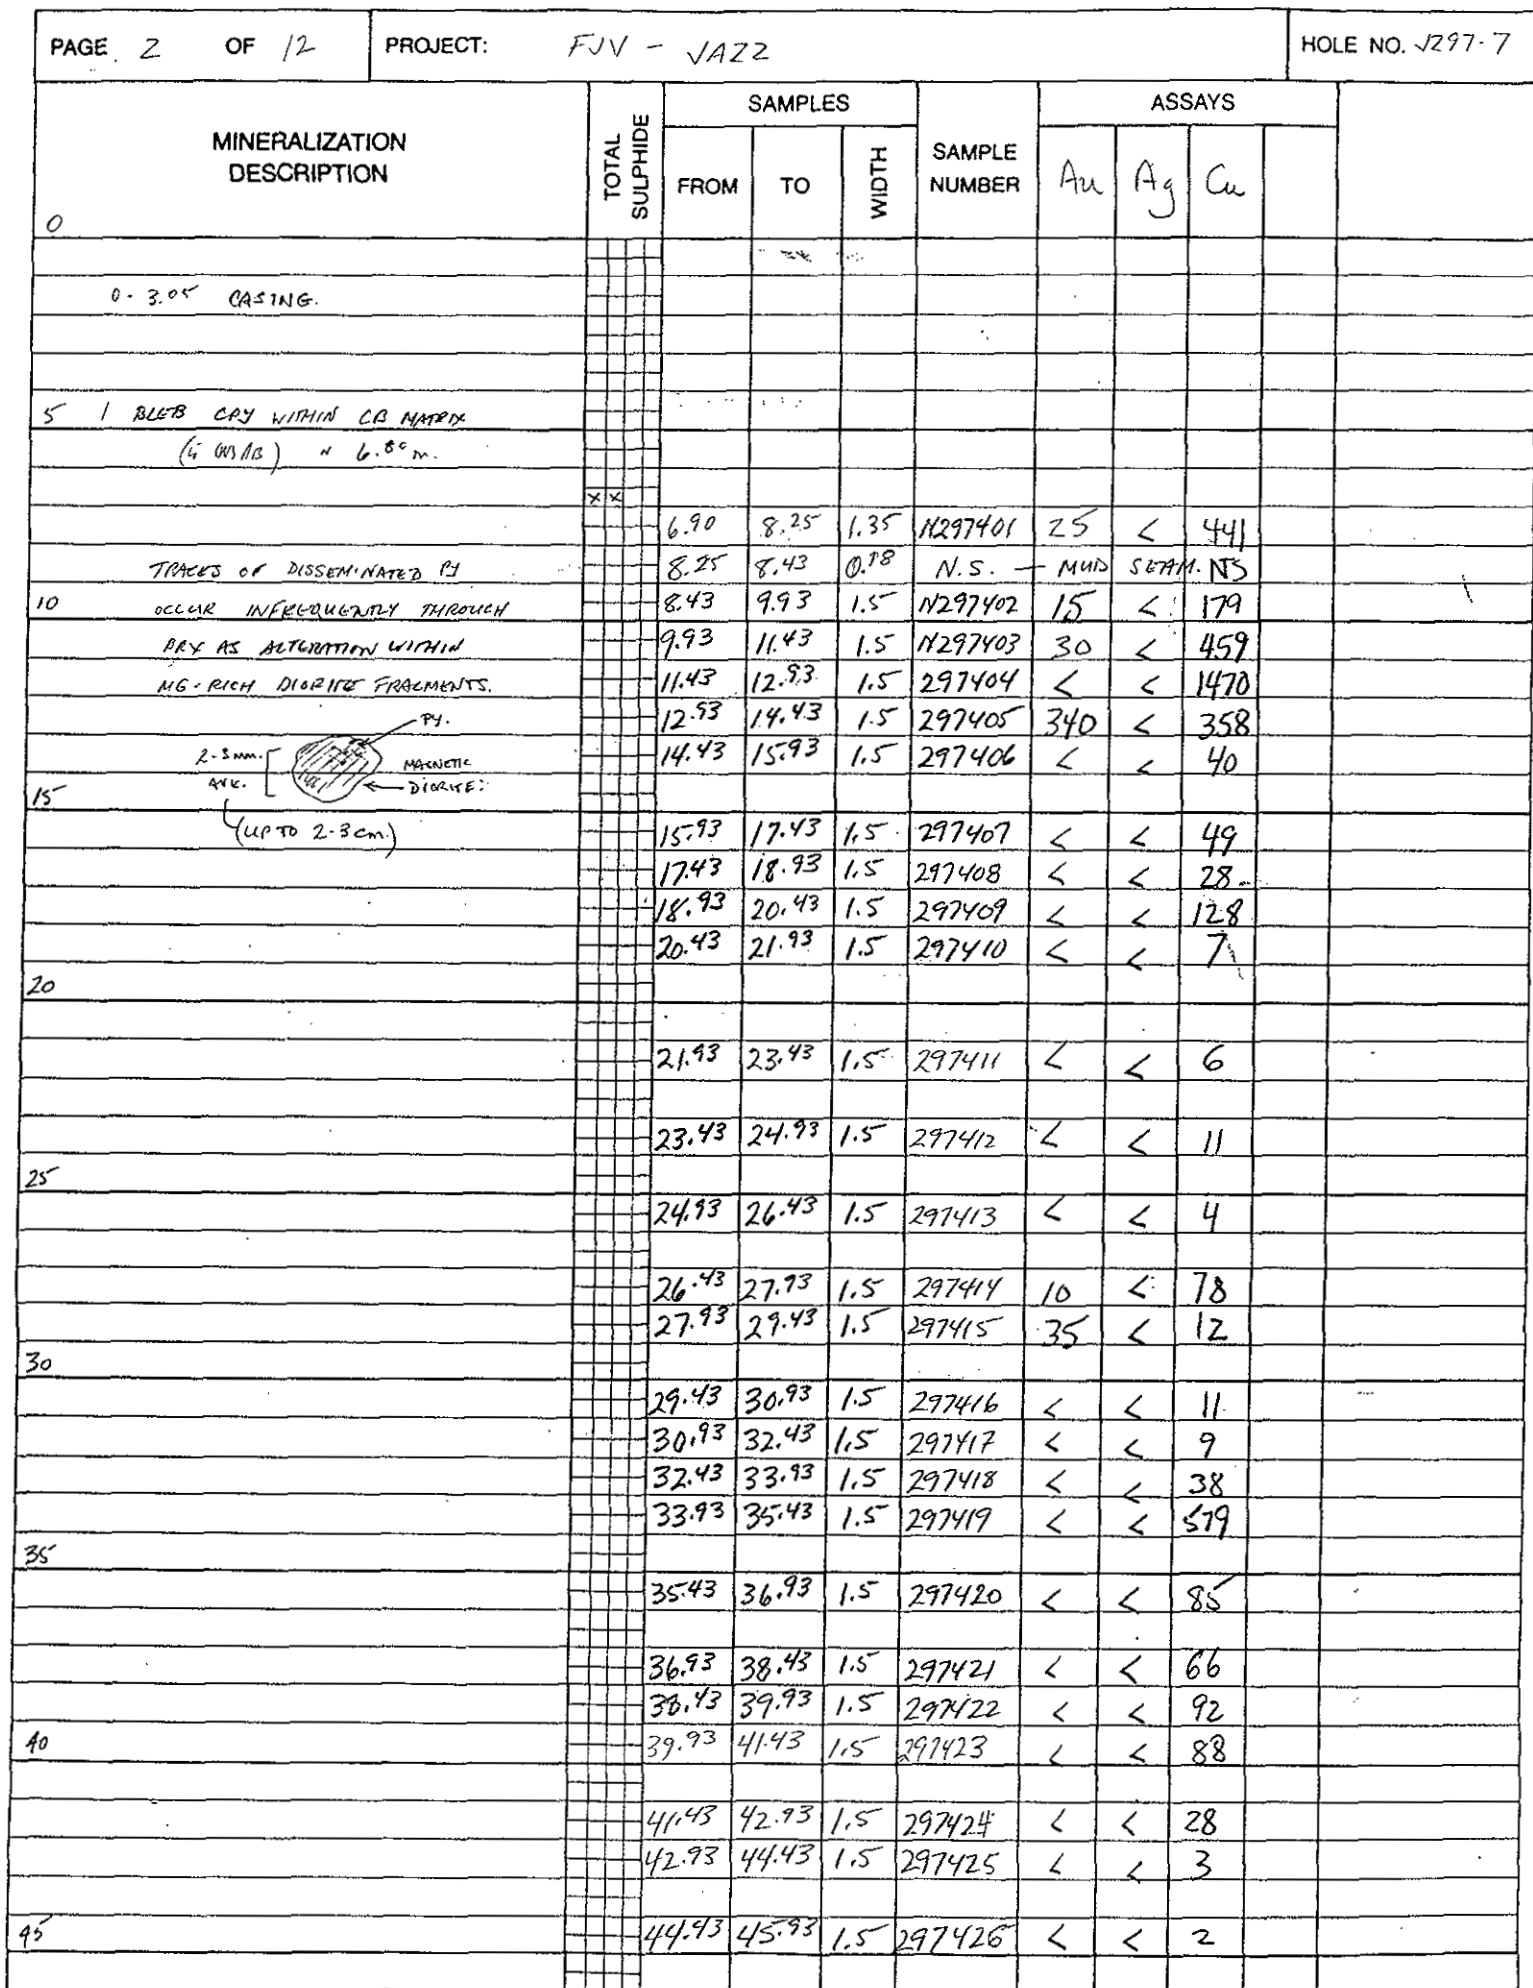 PAGE 2 OF 12 PROJECT: FJV - JAZZ HOLE NO. JZ97-7
MINERALIZATION DESCRIPTION TOTAL SULPHIDE SAMPLES SAMPLE NUMBER ASSAYS
FROM TO WIDTH Au Ag Cu
0
0 - 3.05 CASING.
5 1 BLEB CPY WITHIN CB MATRIX
6.80 m.
x x
6.90 8.25 1.35 N297401 25 < 441
TRACES OF DISSEMINATED PY 8.25 8.43 0.18 N.S. — MUD SEAM. NS
10 OCCUR INFREQUENTLY THROUGH 8.43 9.93 1.5 N297402 15 < 179
AS ALTERATION WITHIN 9.93 11.43 1.5 N297403 30 < 459
MG-RICH DIORITE FRAGMENTS. 11.43 12.93 1.5 297404 < < 1470
PY. 12.93 14.43 1.5 297405 340 < 358
2-3mm. MAGNETIC 14.43 15.93 1.5 297406 < < 40
AVE. DIORITE
15
(UP TO 2-3cm.) 15.93 17.43 1.5 297407 < < 49
17.43 18.93 1.5 297408 < < 28
18.93 20.43 1.5 297409 < < 128
20.43 21.93 1.5 297410 < < 7
20
21.93 23.43 1.5 297411 < < 6
23.43 24.93 1.5 297412 < < 11
25
24.93 26.43 1.5 297413 < < 4
26.43 27.93 1.5 297414 10 < 78
27.93 29.43 1.5 297415 35 < 12
30
29.43 30.93 1.5 297416 < < 11
30.93 32.43 1.5 297417 < < 9
32.43 33.93 1.5 297418 < < 38
33.93 35.43 1.5 297419 < < 579
35
35.43 36.93 1.5 297420 < < 85
36.93 38.43 1.5 297421 < < 66
38.43 39.93 1.5 297422 < < 92
40 39.93 41.43 1.5 297423 < < 88
41.43 42.93 1.5 297424 < < 28
42.93 44.43 1.5 297425 < < 3
45 44.43 45.93 1.5 297426 < < 2